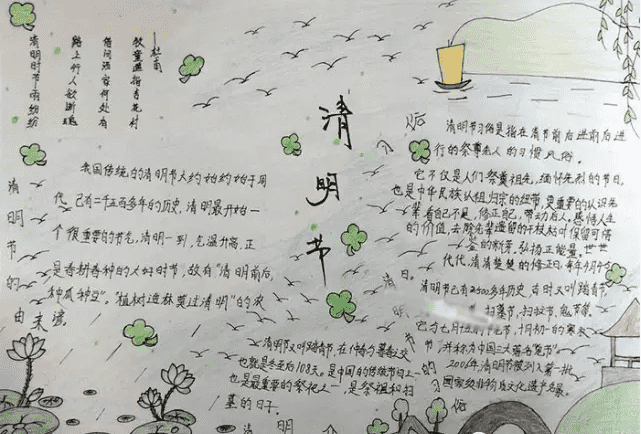 清明时节雨纷纷
路上行人欲断魂
借问酒家何处有
牧童遥指杏花村
杜甫
清明节
清明节的由来
我国传统的清明节大约始约始于周
代,已有二千五百多年的历史,清明最开始一
个很重要的节气,清明一到,气温升高,正
是春耕春种的大好时节,故有“清明前后,
种瓜种豆”。“植树造林莫过清明”的农
谚。
清明节又叫踏青节,在仲春与暮春之交
也就是冬至后108天。是中国的传统节日之一
也是最重要的祭祀之一,是祭祖和扫
墓的日子。
清明节习俗
清明节习俗是指在清节前后进前后进
行的祭尊先人的习惯风俗。
它不仅是人们祭奠祖先,缅怀先烈的节日,
也是中华民族认组归宗的纽带,更重要的认识先
辈着自己不足,修正自己,带动后人。感悟人生
的价值,去除先辈遗留的
鉴的新芽。弘扬正能量,世世
代代,清清楚楚的修正日,每年4月4日
清明节已有2500多年历史,古时又叫踏青节,
扫墓节、扫坟节、鬼节等
它与七月十五中元节,十月初一的寒衣
节“并称为中国三大著名鬼节”
2006年清明节被列入第一批
国家级非物质文化遗产名录。